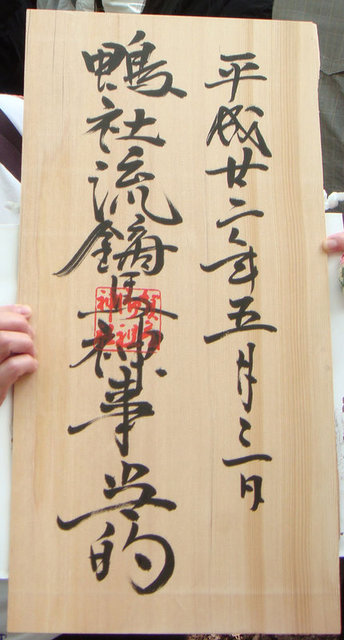 平成廿二年五月三日
鴨社流鏑馬神事当的